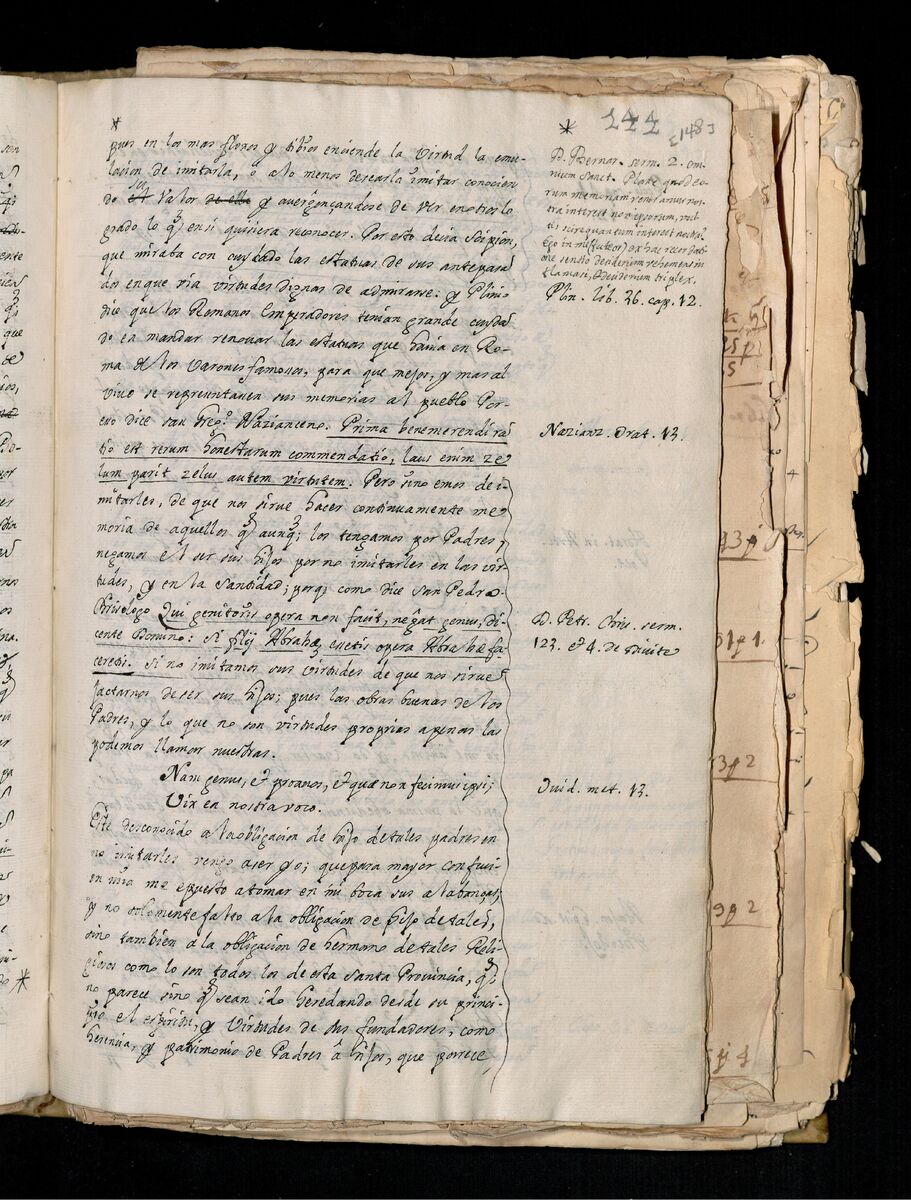 *
* 244
[148]
pues en los mas floxos y tibios enciende la virtud la emu-
lacion de imitarla, o a lo menos desearla imitar conocien
do su valor de ella y avergonçandose de ver en otros lo
grado lo q̃ en si quisiera reconocer. Por esto decia Scipion,
que miraba con cuydado las estatuas de sus antepasa
dos en que via virtudes dignas de admirarse: y Plinio
dice que los Romanos Emperadores tenian grande cuyda
do en mandar renovar las estatuas que havia en Ro-
ma de los varones famosos, para que mejor, y mas al
vivo se representasen sus memorias al pueblo Por
eso dice san Greg.º Nazianceno. Prima benemerendi ra
tio est rerum honestarum commendatio, laus enim ze
lum parit zelus autem virtutem. Pero si no emos de i
mitarles, de que nos sirve hacer continuamente me
moria de aquellos q̃ aunq; los tengamos por Padres,
negamos el ser sus hijos por no imitarles en las vir
tudes, y en la santidad; porq; como dice san Pedro
Crisologo Qui genitoris opera non facit, negat genus, di
cente Domino: si filij Abrahæ essetis opera Abrahæ fa
ceretis. Si no imitamos sus virtudes de que nos sirve
jactarnos de ser sus hijos; pues las obras buenas de los
Padres, y lo que no son virtudes proprias apenas las
podemos llamar nuestras.
Nam genus, et proavos, et quæ non fecimus ipsi;
Vix ea nostra voco.
Este desconocido a la obligacion de hijo de tales padres en
no imitarles vengo a ser yo; que para mayor confusi
on mia me e puesto a tomar en mi boca sus alabanças,
y no solamente falto a la obligacion de hijo de tales,
sino tambien a la obligacion de hermano de tales Reli
giosos como lo son todos los de esta santa Provincia, q̃
no parece sino q̃ se an ido heredando desde su princi-
pio el espiritu, y virtudes de sus fundadores, como
herencia, y patrimonio de Padres â hijos, que parece
D. Bernar. serm. 2. om
nium Sanct. Plane quod eo
rum memoriam veneramur nos
tra interest non ipsorum, vul
tis scire quantum interest nostra?
ego in me (fateor) ex hac recordati
one sentio desiderium vehemens in
flamari, & desiderium triplex.
Plin. lib. 36. cap. 12.
Nazianz. Orat. 13.
D. Petr. Chris. serm.
123. et 4. de Divite
Ovid. met. 13.